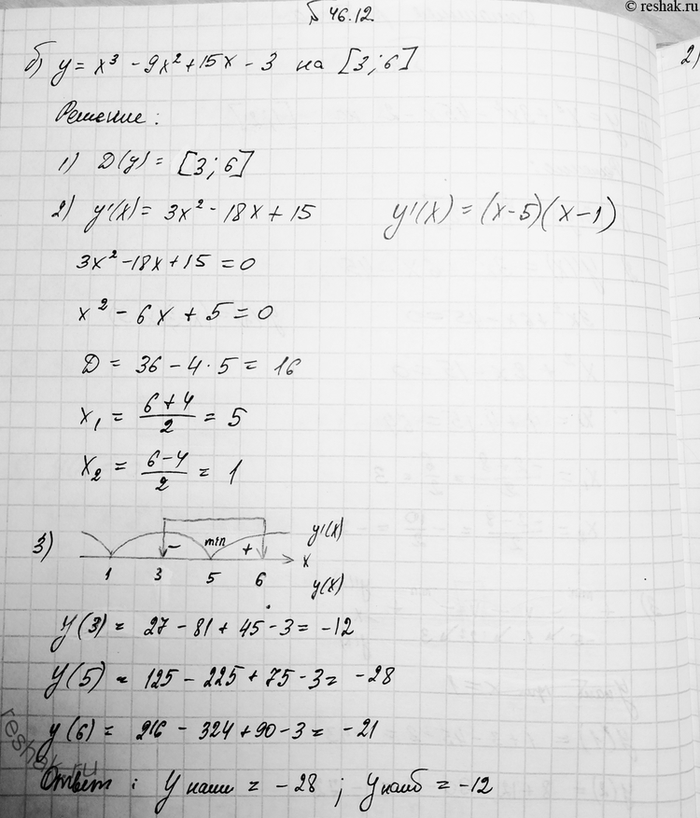 © reshak.ru
№ 46.12.
2)
б) y = x³ - 9x² + 15x - 3 на [3; 6]
Решение:
1) D(y) = [3; 6]
2) y'(x) = 3x² - 18x + 15 y'(x) = (x-5)(x-1)
3x² - 18x + 15 = 0
x² - 6x + 5 = 0
D = 36 - 4·5 = 16
x₁ = (6+4)/2 = 5
x₂ = (6-4)/2 = 1
3) - min + y'(x)
x
1 3 5 6 y(x)
y(3) = 27 - 81 + 45 - 3 = -12
y(5) = 125 - 225 + 75 - 3 = -28
y(6) = 216 - 324 + 90 - 3 = -21
reshak.ru
Ответ: y наим = -28; y наиб = -12